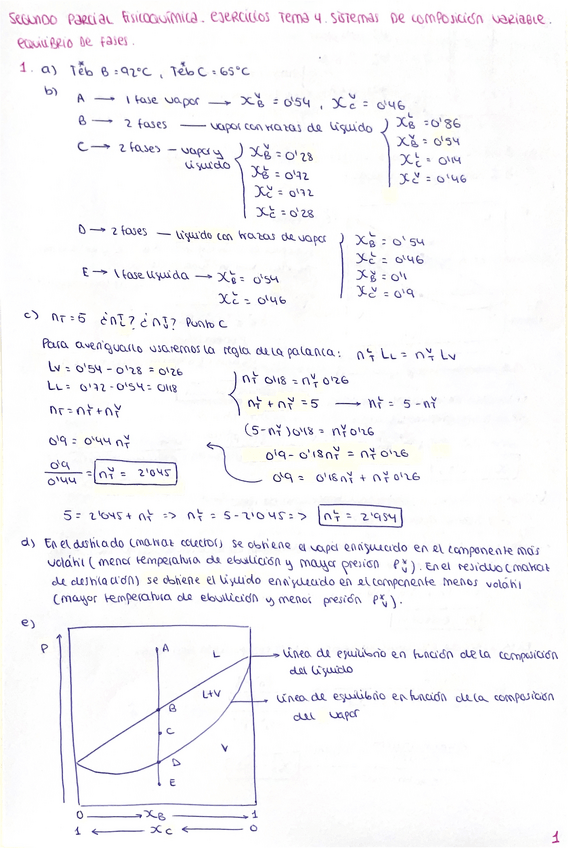 SEGUNDO PARCIAL FISICOQUÍMICA. EJERCICIOS TEMA 4. SISTEMAS DE COMPOSICIÓN VARIABLE.
EQUILIBRIO DE FASES.
1. a) Teb* B = 92ºC, Teb* C = 65ºC
b)
A → 1 fase vapor → X_B^V = 0'54, X_C^V = 0'46
B → 2 fases — vapor con trazas de líquido
X_B^L = 0'86
X_B^V = 0'54
X_C^L = 0'14
X_C^V = 0'46
C → 2 fases – vapor y líquido
X_B^V = 0'28
X_B^L = 0'72
X_C^V = 0'72
X_C^L = 0'28
D → 2 fases — líquido con trazas de vapor
X_B^L = 0'54
X_C^L = 0'46
X_B^V = 0'1
X_C^V = 0'9
E → 1 fase líquida → X_B^L = 0'54
X_C^L = 0'46
c) nT = 5 ¿n_T^L? ¿n_T^V? Punto C
Para averiguarlo usaremos la regla de la palanca: n_T^L LL = n_T^V LV
LV = 0'54 – 0'28 = 0'26
LL = 0'72 – 0'54 = 0'18
nT = n_T^L + n_T^V
n_T^L 0'18 = n_T^V 0'26
n_T^L + n_T^V = 5 → n_T^L = 5 – n_T^V
(5 – n_T^V) 0'18 = n_T^V 0'26
0'9 – 0'18 n_T^V = n_T^V 0'26
0'9 = 0'18 n_T^V + n_T^V 0'26
0'9 = 0'44 n_T^V
0'9/0'44 = n_T^V = 2'045
5 = 2'045 + n_T^L => n_T^L = 5 – 2'045 => n_T^L = 2'954
d) En el destilado (matraz colector) se obtiene el vapor enriquecido en el componente más
volátil (menor temperatura de ebullición y mayor presión P_V^*). En el residuo (matraz
de destilación) se obtiene el líquido enriquecido en el componente menos volátil
(mayor temperatura de ebullición y menos presión P_V^*).
e)
P
A
L
L+V
B
C
V
D
E
línea de equilibrio en función de la composición
del líquido
línea de equilibrio en función de la composición
del vapor
0 → XB → 1
1 ← XC ← 0
1